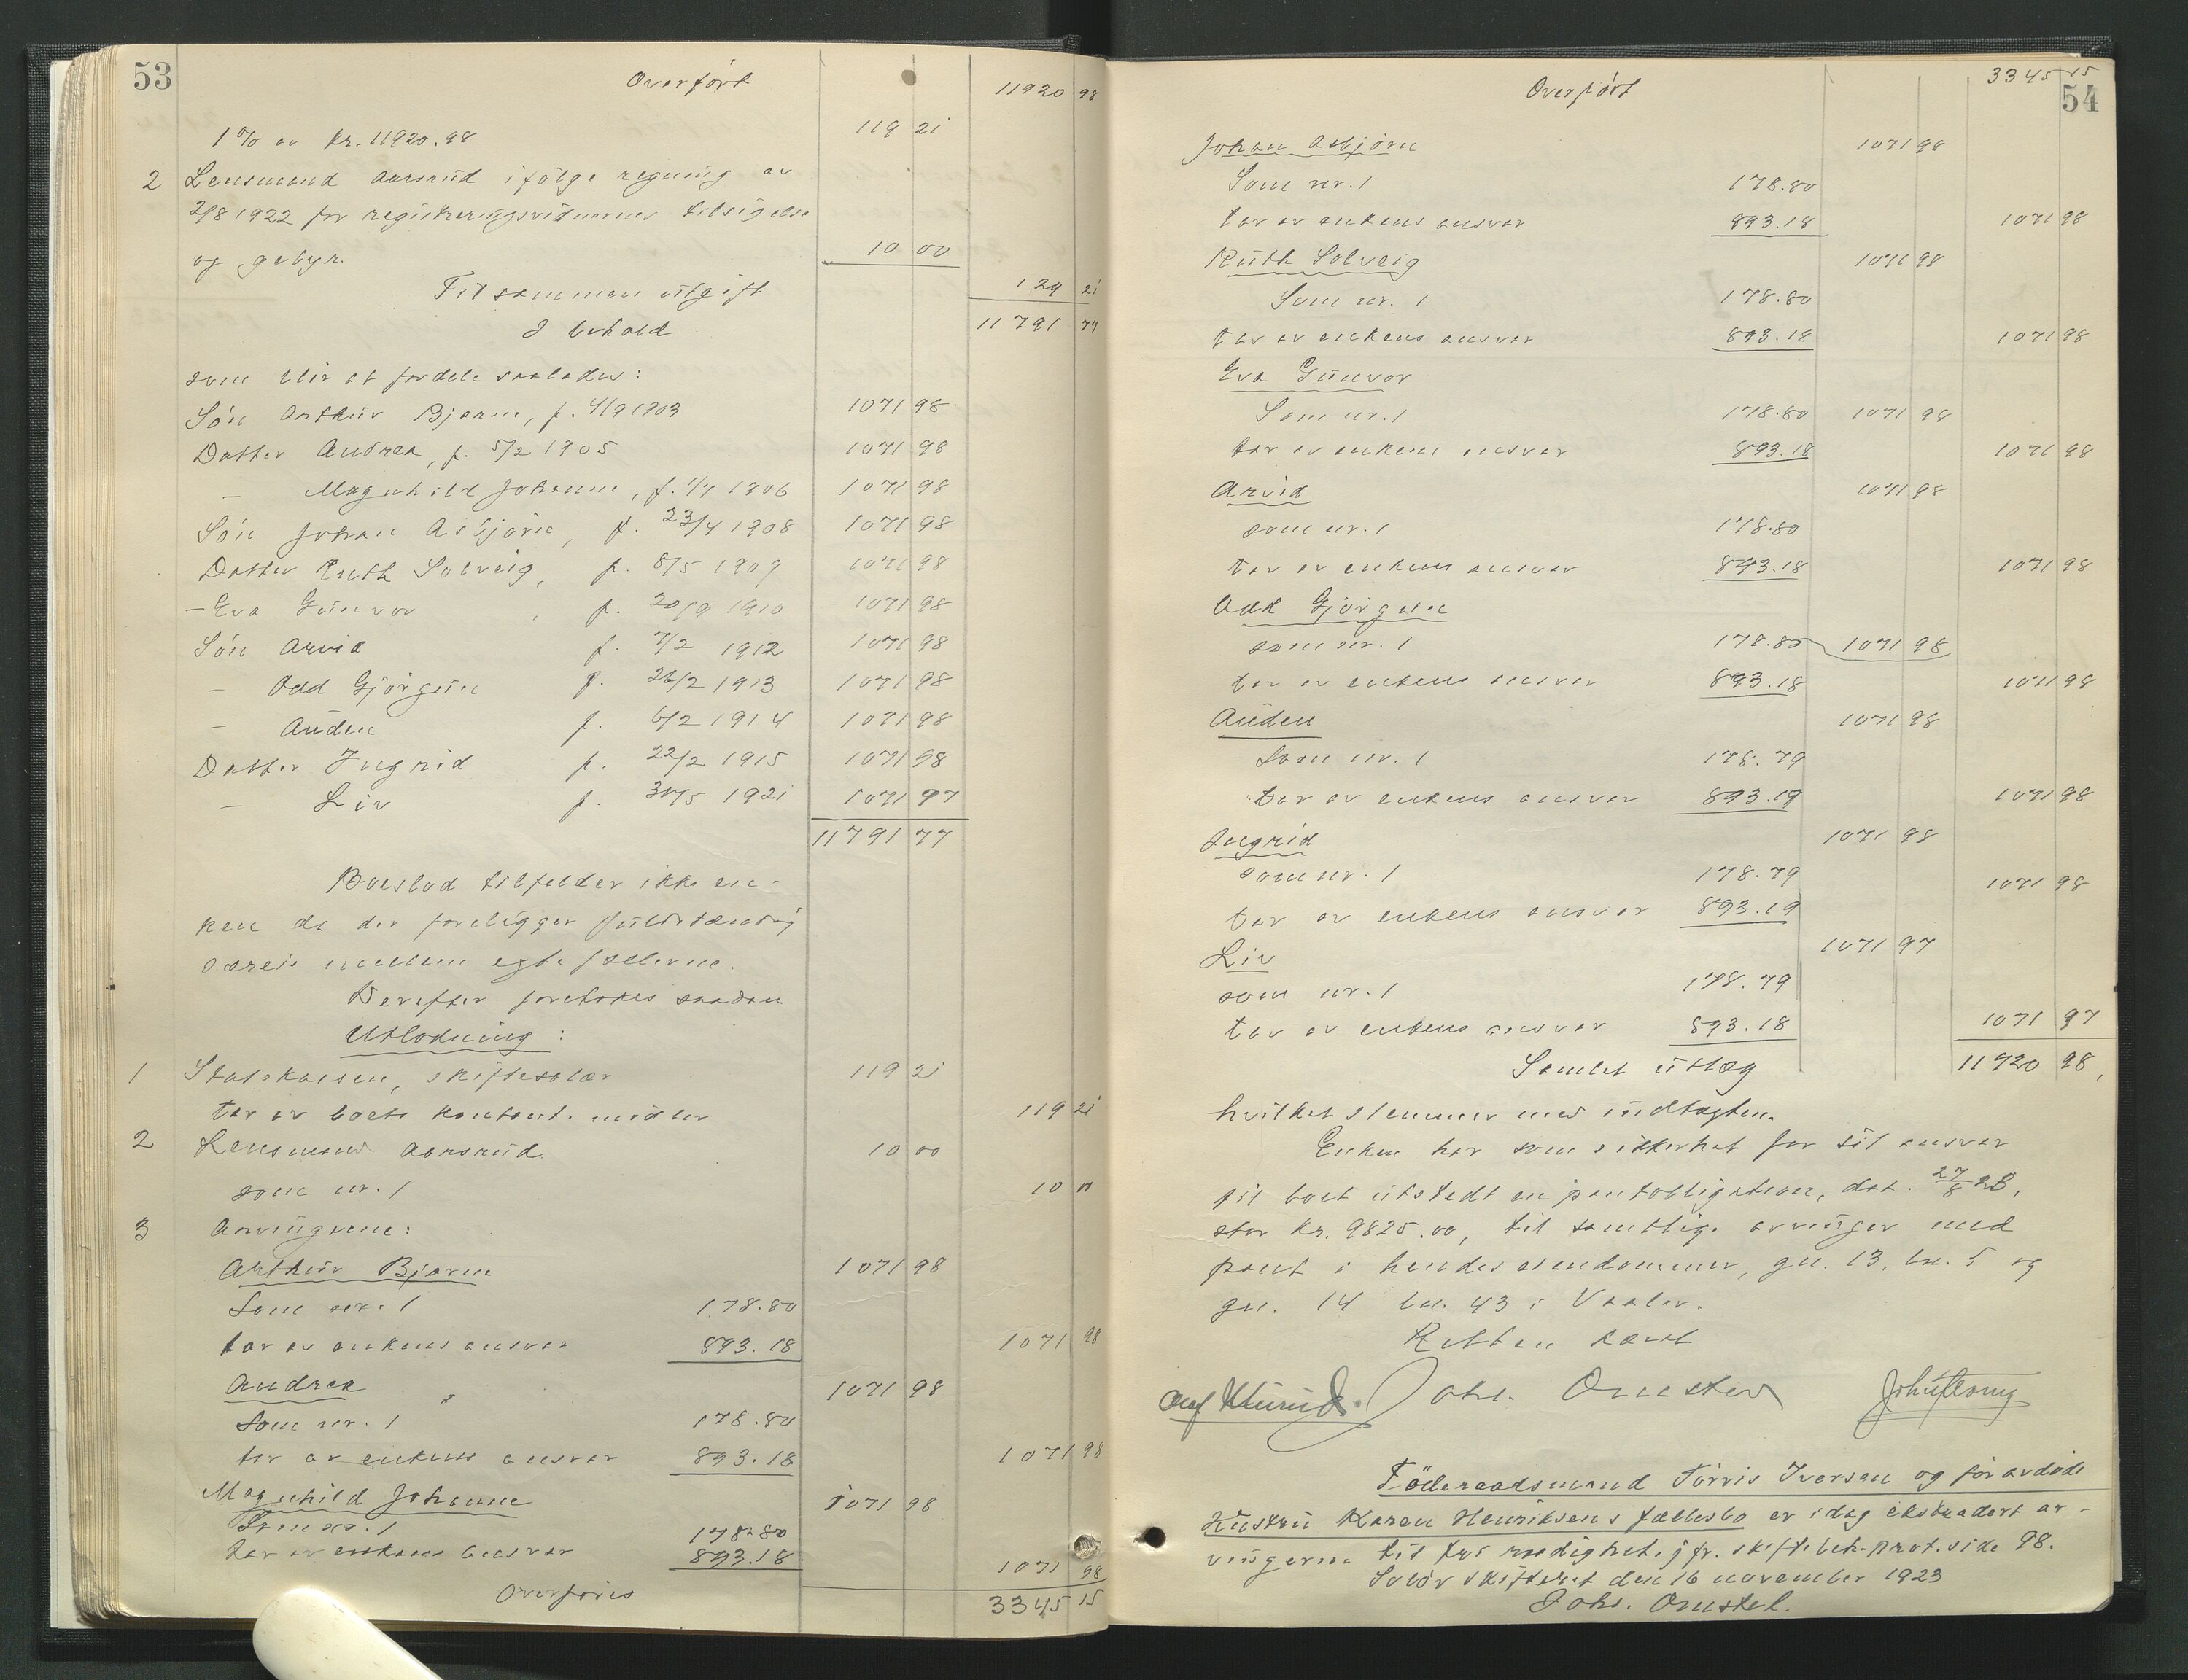 53
Overført 11920 98
1% av kr. 11920.98 119 21
2 Lensmand Aarsrud ifølge regning av
2/8 1922 for registreringsvidnernes tilsigelse
og gebyr. 10 00
Tilsammen utgift 129 21
I behold 11791 77
som blir at fordele saaledes:
Søn Arthur Bjarne, f. 4/9 1903 1071 98
Datter Andrea, f. 5/2 1905 1071 98
– Magnhild Johanne, f. 1/7 1906 1071 98
Søn Johan Asbjørn, f. 23/4 1908 1071 98
Datter Ruth Solveig, f. 8/5 1909 1071 98
– Eva Gunvor, f. 20/9 1910 1071 98
Søn Arvid f. 7/2 1912 1071 98
– Odd Gjørgen f. 26/2 1913 1071 98
– Auden f. 6/2 1914 1071 98
Datter Ingrid f. 22/2 1915 1071 98
– Liv f. 30/5 1921 1071 97
11791 77
Boeslod tilfalder ikke en-
ken da der foreligger fuldstændig
særeie mellem egtefællerne.
Derefter foretokes saadan
Utlodning:
1 Statskassen, skiftesalær 119 21
tar av boets kontante midler 119 21
2 Lensmand Aarsrud 10 00
som nr. 1 10 00
3 Arvingerne:
Arthur Bjarne 1071 98
Som nr. 1 178.80
tar av enkens ansvar 893.18 1071 98
Andrea 1071 98
Som nr. 1 178.80
tar av enkens ansvar 893.18 1071 98
Magnhild Johanne 1071 98
Som nr. 1 178.80
tar av enkens ansvar 893.18 1071 98
Overføres 3345 15
54
Overført 3345 15
Johan Asbjørn 1071 98
Som nr. 1 178.80
tar av enkens ansvar 893.18 1071 98
Ruth Solveig 1071 98
Som nr. 1 178.80
tar av enkens ansvar 893.18 1071 98
Eva Gunvor
Som nr. 1 178.80 1071 98
tar av enkens ansvar 893.18 1071 98
Arvid 1071 98
som nr. 1 178.80
tar av enkens ansvar 893.18 1071 98
Odd Gjørgen
som nr. 1 178.80 1071 98
tar av enkens ansvar 893.18 1071 98
Auden 1071 98
Som nr. 1 178.79
tar av enkens ansvar 893.19 1071 98
Ingrid 1071 98
som nr. 1 178.79 1071 98
tar av enkens ansvar 893.19
Liv 1071 97
som nr. 1 178.79
tar av enkens ansvar 893.18 1071 97
Samlet utlæg 11920 98,
hvilket stemmer med indtægten.
Enken har som sikkerhet for sit ansvar
til boet utstedt en pantobligation, dat. 27/8 23,
stor kr. 9825.00, til samtlige arvinger med
pant i hendes eiendommer, gn. 13, bn. 5 og
gn. 14 bn. 43 i Vaaler.
Retten hævt
Johs. Omsted
Föderaadsmand Törris Iversen og før avdøde
hustru Karen Henriksens fællesbo er idag ekstradert ar-
vingerne til fri raadighet, jfr. skiftebeh. prot. side 98.
Solør skifteret den 16 november 1923
Johs. Omsted.